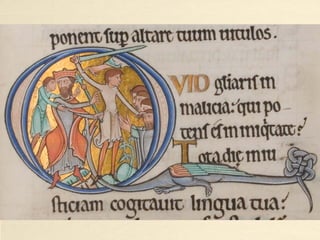 ponent sup altare tuum uitulos.
QUID gl̄iaris in
malicia: qui po
tens es in iniq̇tate?
Tota die iniu
sticiam cogitauit lingua tua: